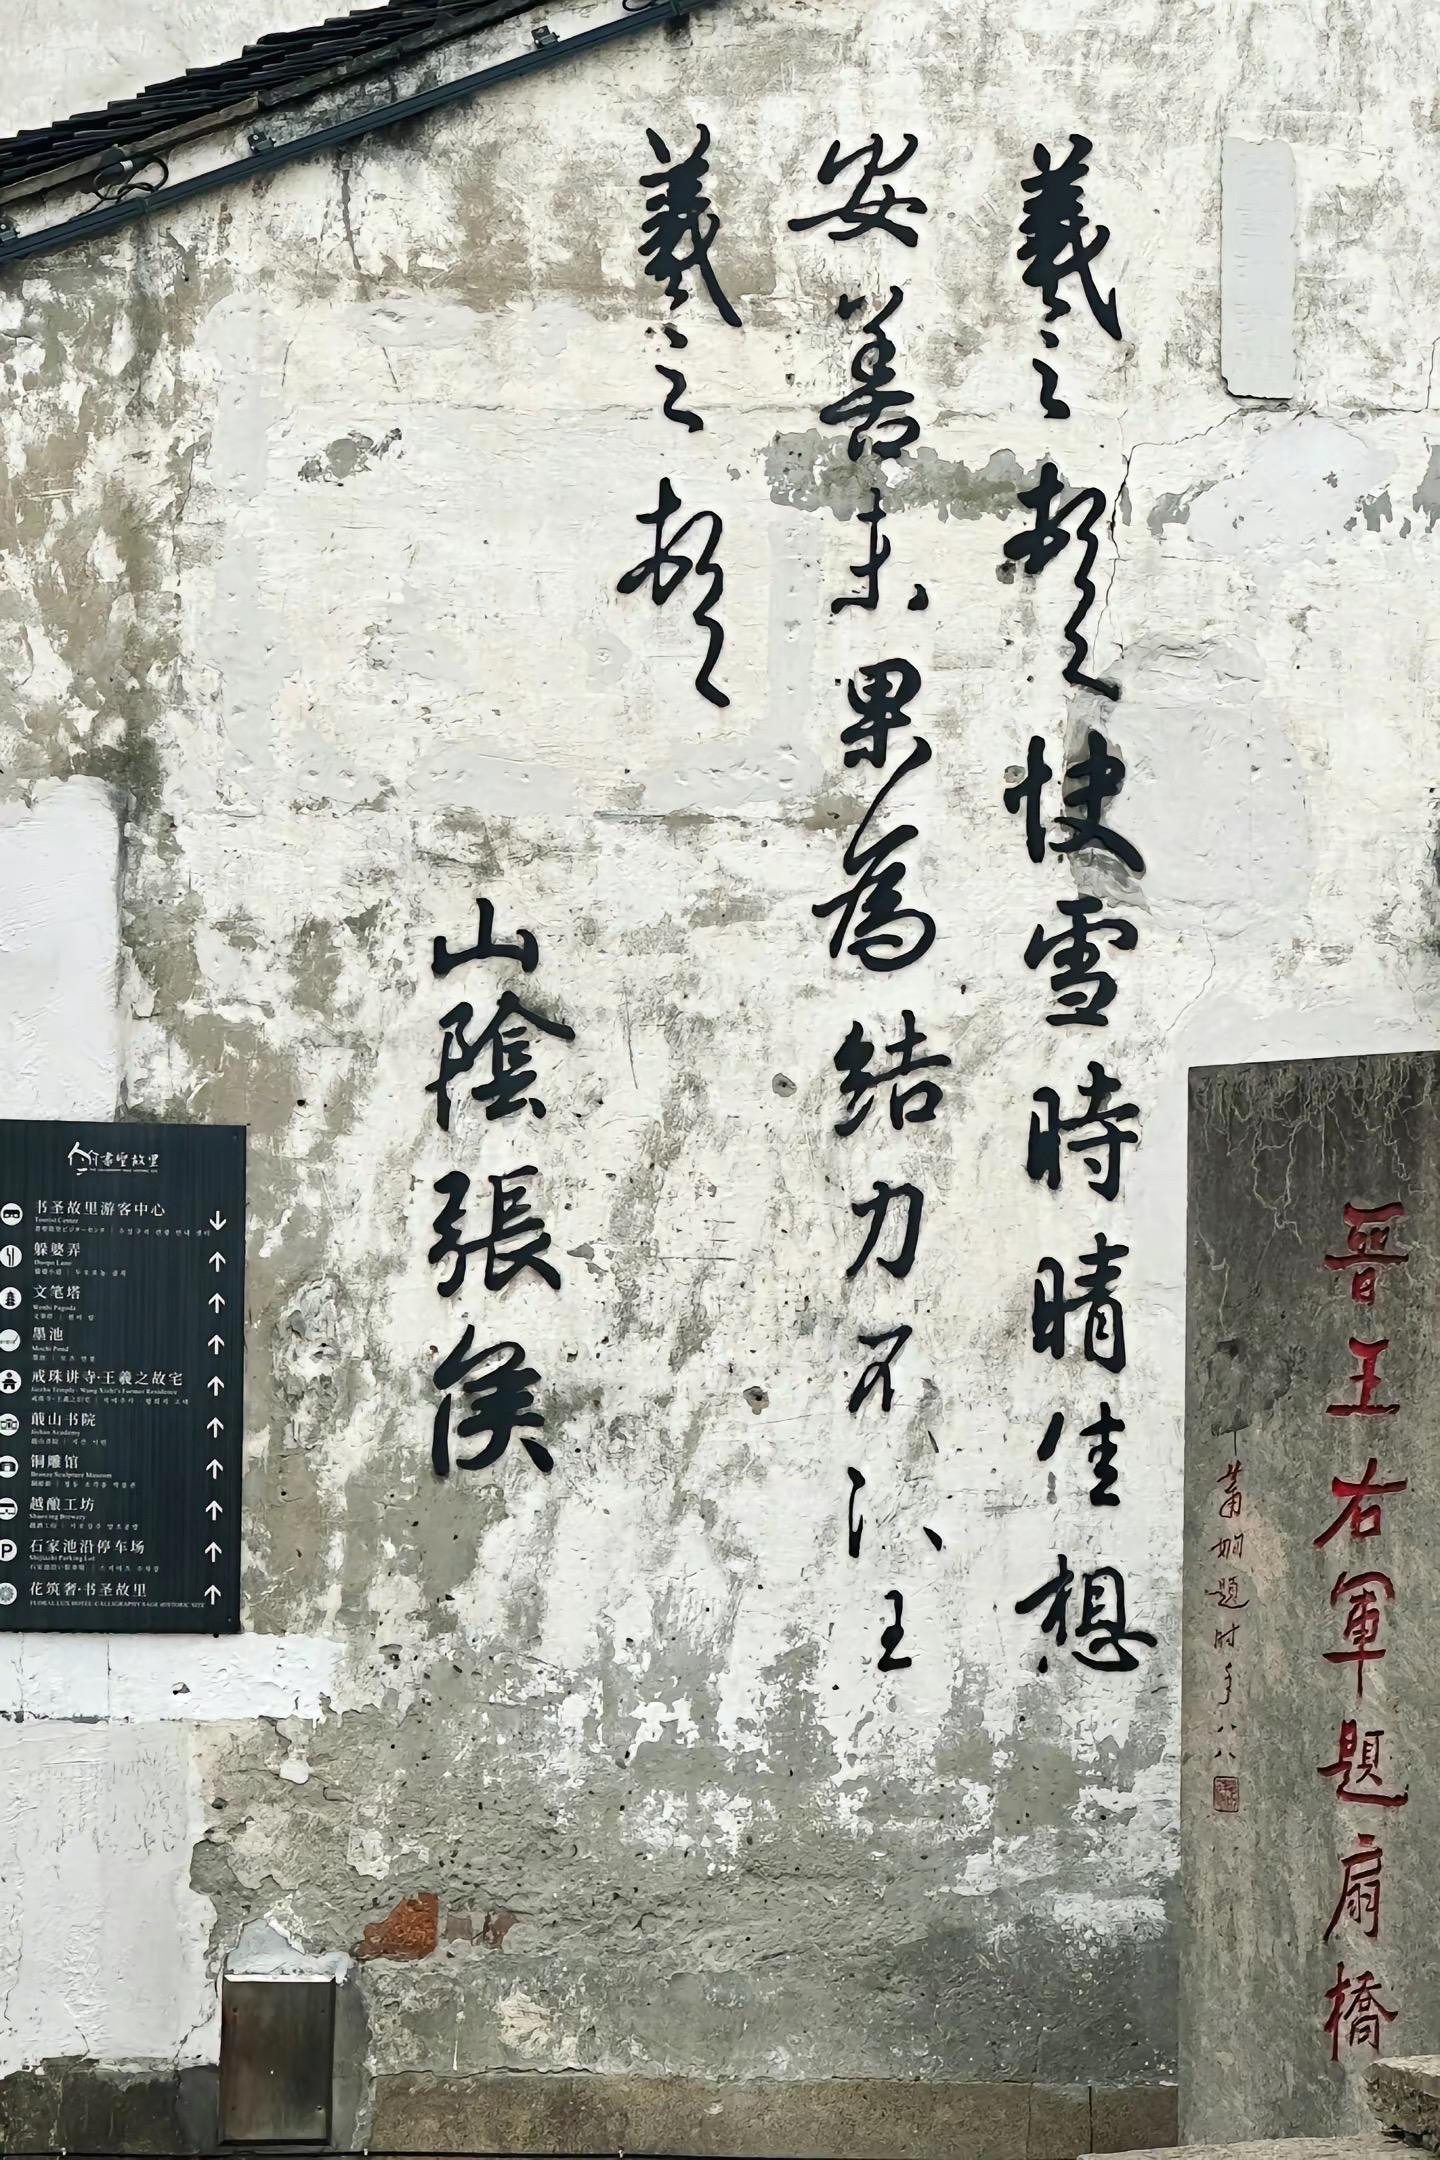 羲之頓首快雪時晴佳想
安善未果為結力不次王
羲之頓首
山陰張侯
晉王右軍題扇橋
蕭嫻題时年八八
書聖故里
书圣故里游客中心
Tourist Center
躲婆弄
Duopo Lane
文笔塔
Wenbi Pagoda
墨池
Mochi Pond
戒珠讲寺·王羲之故宅
Jiezhu Temple · Wang Xizhi's Former Residence
蕺山书院
Jishan Academy
铜雕馆
Bronze Sculpture Museum
越酿工坊
Shaoxing Brewery
P
石家池沿停车场
Shijiachi Parking Lot
花筑奢·书圣故里
FLORAL LUX HOTEL·CALLIGRAPHY SAGE HISTORIC SITE